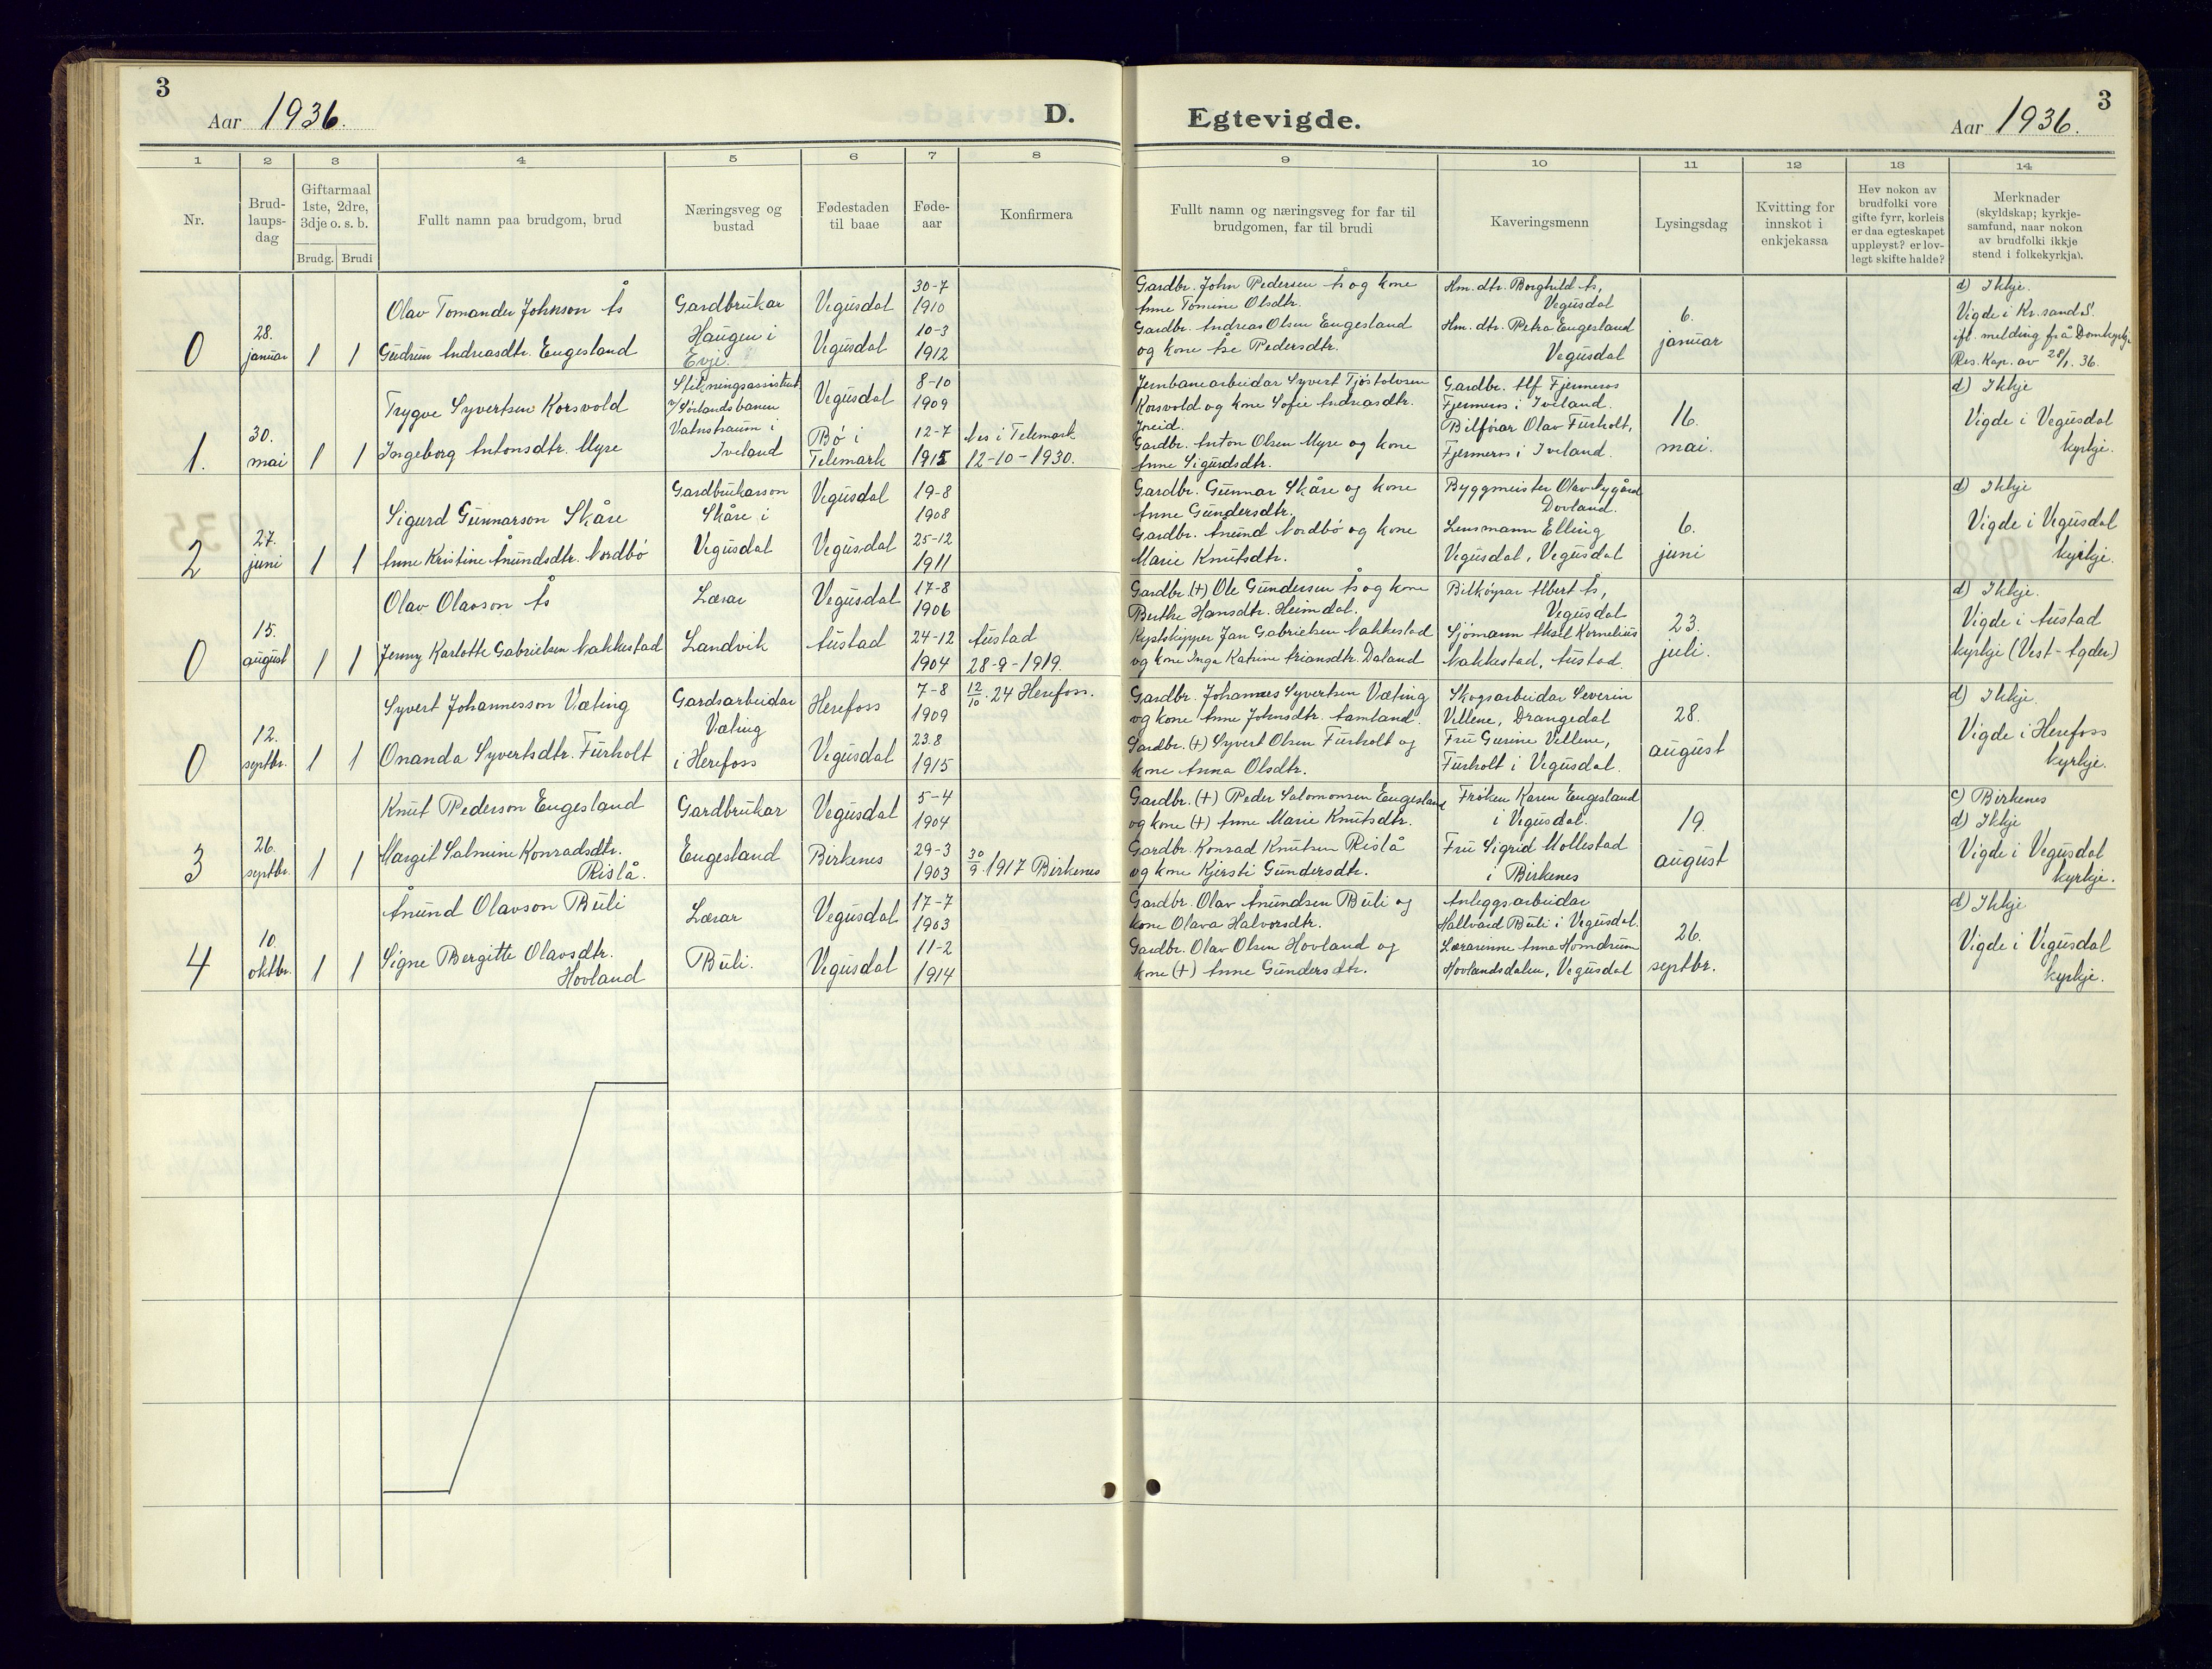 3
Aar 1936.
D.
Egtevigde.
Aar 1936.
3
1 2 3 4 5 6 7 8 9 10 11 12 13 14
Nr.
Brud-
laups-
dag
Giftarmaal
1ste, 2dre,
3dje o. s. b.
Brudg. Brudi
Fullt namn paa brudgom, brud
Næringsveg og
bustad
Fødestaden
til baae
Føde-
aar
Konfirmera
Fullt namn og næringsveg for far til
brudgomen, far til brudi
Kaveringsmenn
Lysingsdag
Kvitting for
innskot i
enkjekassa
Hev nokon av
brudfolki vore
gifte fyrr, korleis
er daa egteskapet
uppløyst? er lov-
legt skifte halde?
Merknader
(skyldskap; kyrkje-
samfund, naar nokon
av brudfolki ikkje
stend i folkekyrkja).
0
28.
januar
1 1
Olav Tomander Johnson Ås
Gudrun Andreasdtr. Engesland
Gardbrukar
Haugen i
Evje ?
Vegusdal
Vegusdal
30-7
1910
10-3
1912
Gardbr. John Pedersen Ås og kone
Anne Tomine Olsdtr.
Gardbr. Andreas Olsen Engesland
og kone Åse Pedersdtr.
Hm. dtr. Borghild Ås,
Vegusdal
Hm. dtr. Petra Engesland
Vegusdal
6.
januar
d) Ikkje.
Vigde i Kr.sand S.
ifl. melding frå Domkyrkje
Res. Kap. av 28/1. 36.
1.
30.
mai
1 1
Trygve Syvertsen Korsvold
Ingeborg Antonsdtr. Myre
Stikningsassistent
v/Sørlandsbanen
Vatnstraum i
Iveland
Vegusdal
Bø i
Telemark
8-10
1909
12-7
1915
Nes i Telemark
12-10-1930.
Jernbanearbeidar Syvert Tjøstolvsen
Korsvold og kone Sofie Andreasdtr.
Ineid.
Gardbr. Anton Olsen Myre og kone
Anne Sigurdsdtr.
Gardbr. Alf Fjermeros
Fjermeros i Iveland.
Bilførar Olav Furholt,
Fjermeros i Iveland.
16.
mai.
d) Ikkje
Vigde i Vegusdal
kyrkje.
2
27.
juni
1 1
Sigurd Gunnarson Skåre
Anne Kristine Ånundsdtr. Nordbø
Gardbrukarson
Skåre i
Vegusdal
Vegusdal
Vegusdal
19-8
1908
25-12
1911
Gardbr. Gunnar Skåre og kone
Anne Gundersdtr.
Gardbr. Ånund Nordbø og kone
Marie Knutsdtr.
Byggmeister Olav Nygård
Dovland.
Lensmann Elling
Vegusdal, Vegusdal
6.
juni
d) Ikkje
Vigde i Vegusdal
kyrkje.
0
15.
august
1 1
Olav Olavson Ås
Jenny Karlotte Gabrielsen Nakkestad
Lærar
Landvik
Vegusdal
Austad
17-8
1906
24-12
1904
Austad
28-9-1919.
Gardbr. (+) Ole Gundersen Ås og kone
Berthe Hansdtr. Heimdal.
Kystskipper Jan Gabrielsen Nakkestad
og kone Inga Katrine Ariansdtr. Daland
Bilkøyrar Albert Ås,
Vegusdal
Sjømann Aksel Kornelius
Nakkestad, Austad.
23.
juli.
d) Ikkje.
Vigde i Austad
kyrkje (Vest-Agder)
0
12.
septbr.
1 1
Syvert Johannesson Væting
Onanda Syvertsdtr. Furholt
Gardsarbeidar
Væting
i Herefoss
Herefoss
Vegusdal
7-8
1909
23.8
1915
12/10. 24 Herefoss.
Gardbr. Johannes Syvertsen Væting
og kone Anne Johnsdtr. Aamland.
Gardbr. (+) Syvert Olsen Furholt og
kone Anna Olsdtr.
Skogsarbeidar Severin
Vellene, Drangedal
Fru Gurine Vellene,
Furholt i Vegusdal.
28.
august
d) Ikkje.
Vigde i Herefoss
kyrkje.
3
26.
septbr.
1 1
Knut Pederson Engesland
Margit Salmine Konradsdtr.
Rislå.
Gardbrukar
Engesland
Vegusdal
Birkenes
5-4
1904
29-3
1903
30/9. 1917 Birkenes
Gardbr. (+) Peder Salomonsen Engesland
og kone (+) Anne Marie Knutsdtr.
Gardbr. Konrad Knutsen Rislå
og kone Kjersti Gundersdtr.
Frøken Karen Engesland
i Vegusdal.
Fru Sigrid Mollestad
i Birkenes
19.
august
c) Birkenes
d) Ikkje
Vigde i Vegusdal
kyrkje.
4
10.
oktbr.
1 1
Ånund Olavson Buli
Signe Bergitte Olavsdtr.
Hovland
Lærar
Buli.
Vegusdal
Vegusdal
17-7
1903
11-2
1914
Gardbr. Olav Ånundsen Buli og
kone Olava Halvorsdtr.
Gardbr. Olav Olsen Hovland og
kone (+) Anne Gundersdtr.
Anleggsarbeidar
Hallvard Buli i Vegusdal.
Lærarinne Anna Homdrum
Hovlandsdalen, Vegusdal
26.
septbr.
d) Ikkje
Vigde i Vegusdal
kyrkje.